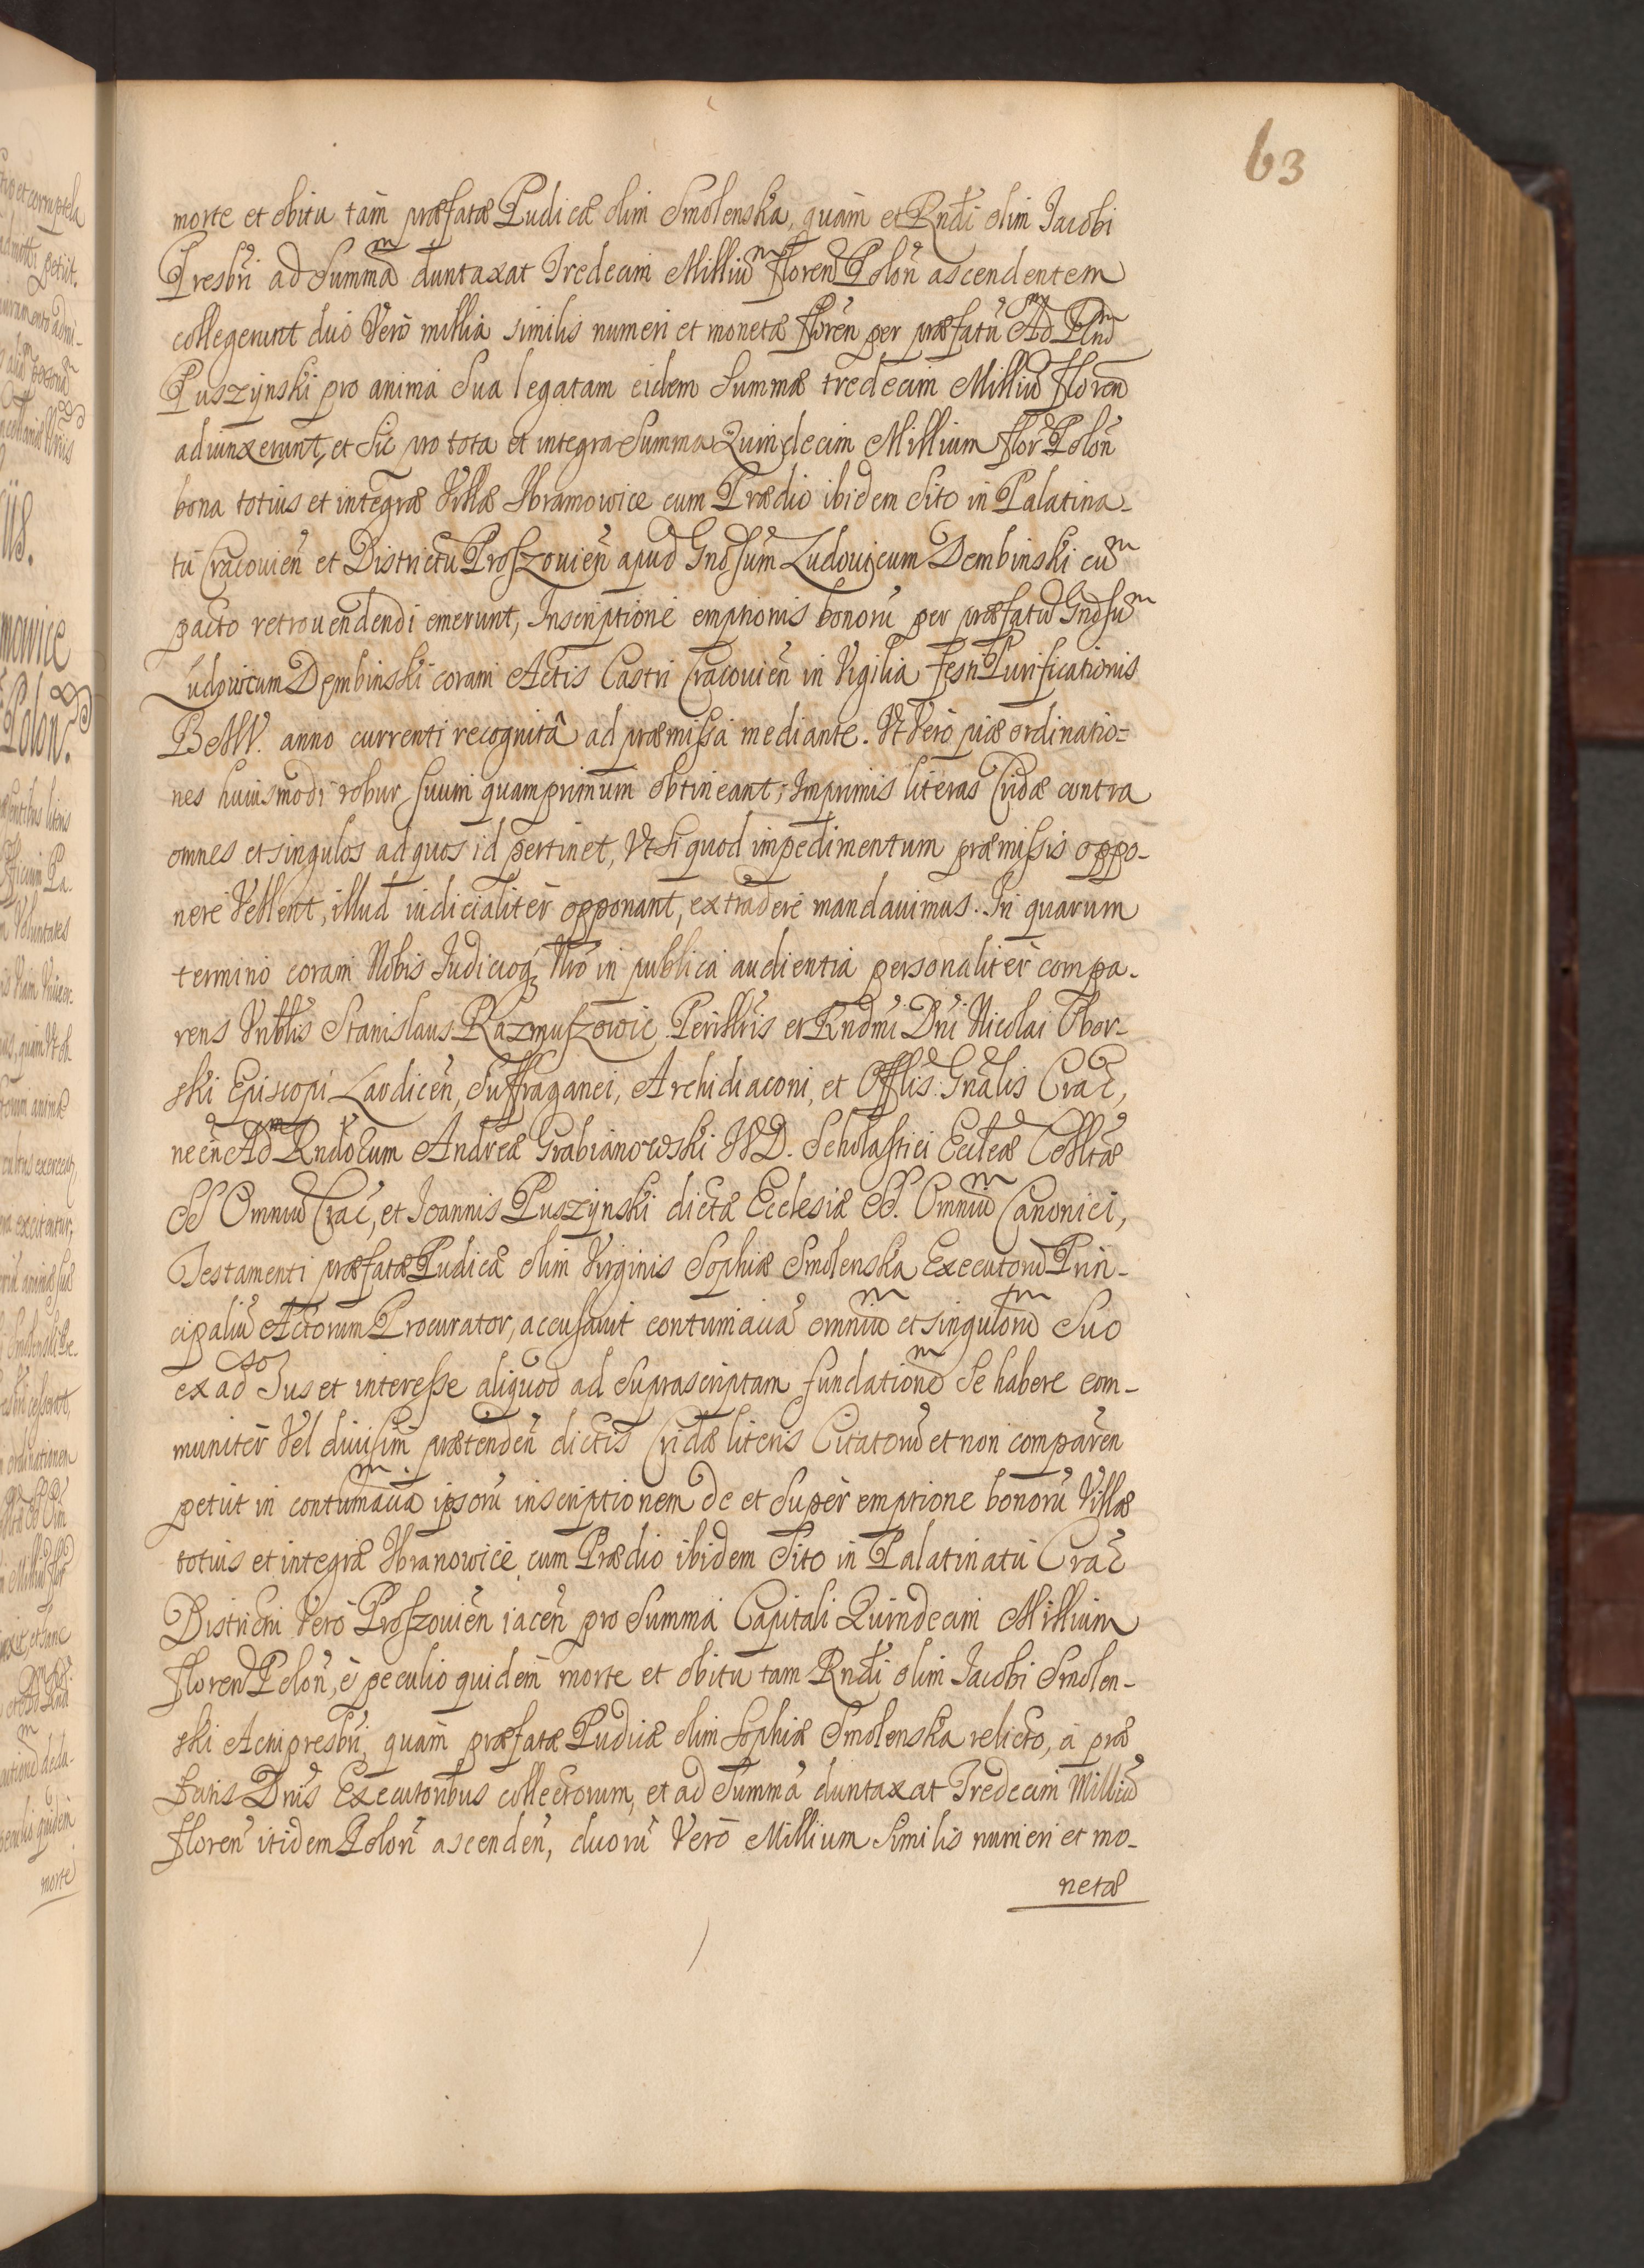 63
morte et obitu tàm præfatæ Pudicæ olim Smolenska, quàm et Rndi olim Jacobi
Presbri ad Summam duntaxat Tredecim Millium floren Polon ascendentem
collegerunt duo Verò millia similis numeri et monetæ floren per præfatu Adm Rnd
Puszynski pro anima Sua legatam eidem Summæ tredecim Milliu floren
adiunxerunt, et Sic pro tota et integra Summa Quindecim Millium flor Polon
bona totius et integræ Villæ Ibramowice cum Prædio ibidem Sito in Palatina-
tu Cracouien et Districtu Proszouien apud Gnosum Ludouicum Dembinski cum
pacto retrouendendi emerunt, Inscriptione emptionis bonoru per præfatu Gnosum
Ludouicum Dembinski coram Actis Castri Cracouien in Vigilia festi Purificationis
BMV. anno currenti recognitâ ad præmissa mediante. Vt Verò piæ ordinatio=
nes huiusmodi robur suum quamprimum obtineant, Imprimis literas Cridæ contra
omnes et singulos ad quos id pertinet, Vt Si quod impedimentum præmissis oppo-
nere Vellent, illud iudicialiter opponant, extradere mandauimus. In quarum
termino coram Nobis Iudicioq Nro in publica audientia personaliter compa-
rens Vnblis Stanislaus Razmuszowic Perillris et Rndmi Dni Nicolai Obor-
ski Episcopi Laodicen, Suffraganei, Archidiaconi, et Offlis Gnalis Crac,
necn Adm Rndorum Andreæ Grabianowski IVD. Scholastici Ecclæ Colltæ
SS Omniu Crac, et Ioannis Puszynski dictæ Ecclesiæ SS. Omnium Canonici,
Testamenti præfatæ Pudicæ olim Virginis Sophiæ Smolenska Executoru Prin-
cipaliu Actorum Procurator, accusauit contumacia omnium et singulorum Suo
ex ad so Ius et interesse aliquod ad Suprascriptam fundationem Se habere com-
muniter Vel diuisim prætenden dictis Cridæ literis Citatoru et non comparen
petiit in contumaciam ipsoru inscriptionem de et Super emptione bonoru Villæ
totius et integræ Ibranowice cum Prædio ibidem Sito in Palatinatu Crac
Districtu Verò Proszouien iacen pro Summa Capitali Quindecim Millium
floren Polon, è peculio quidem morte et obitu tam Rndi olim Jacobi Smolen-
ski Archipresbri, quàm præfatæ Pudicæ olim Sophiæ Smolenska relicto, à præ
fatis Dnis Executoribus collectorum, et ad Summa duntaxat Tredecim Milliu
floren itidem Polon ascenden, duoru Verò Millium Similis numeri et mo-
netæ